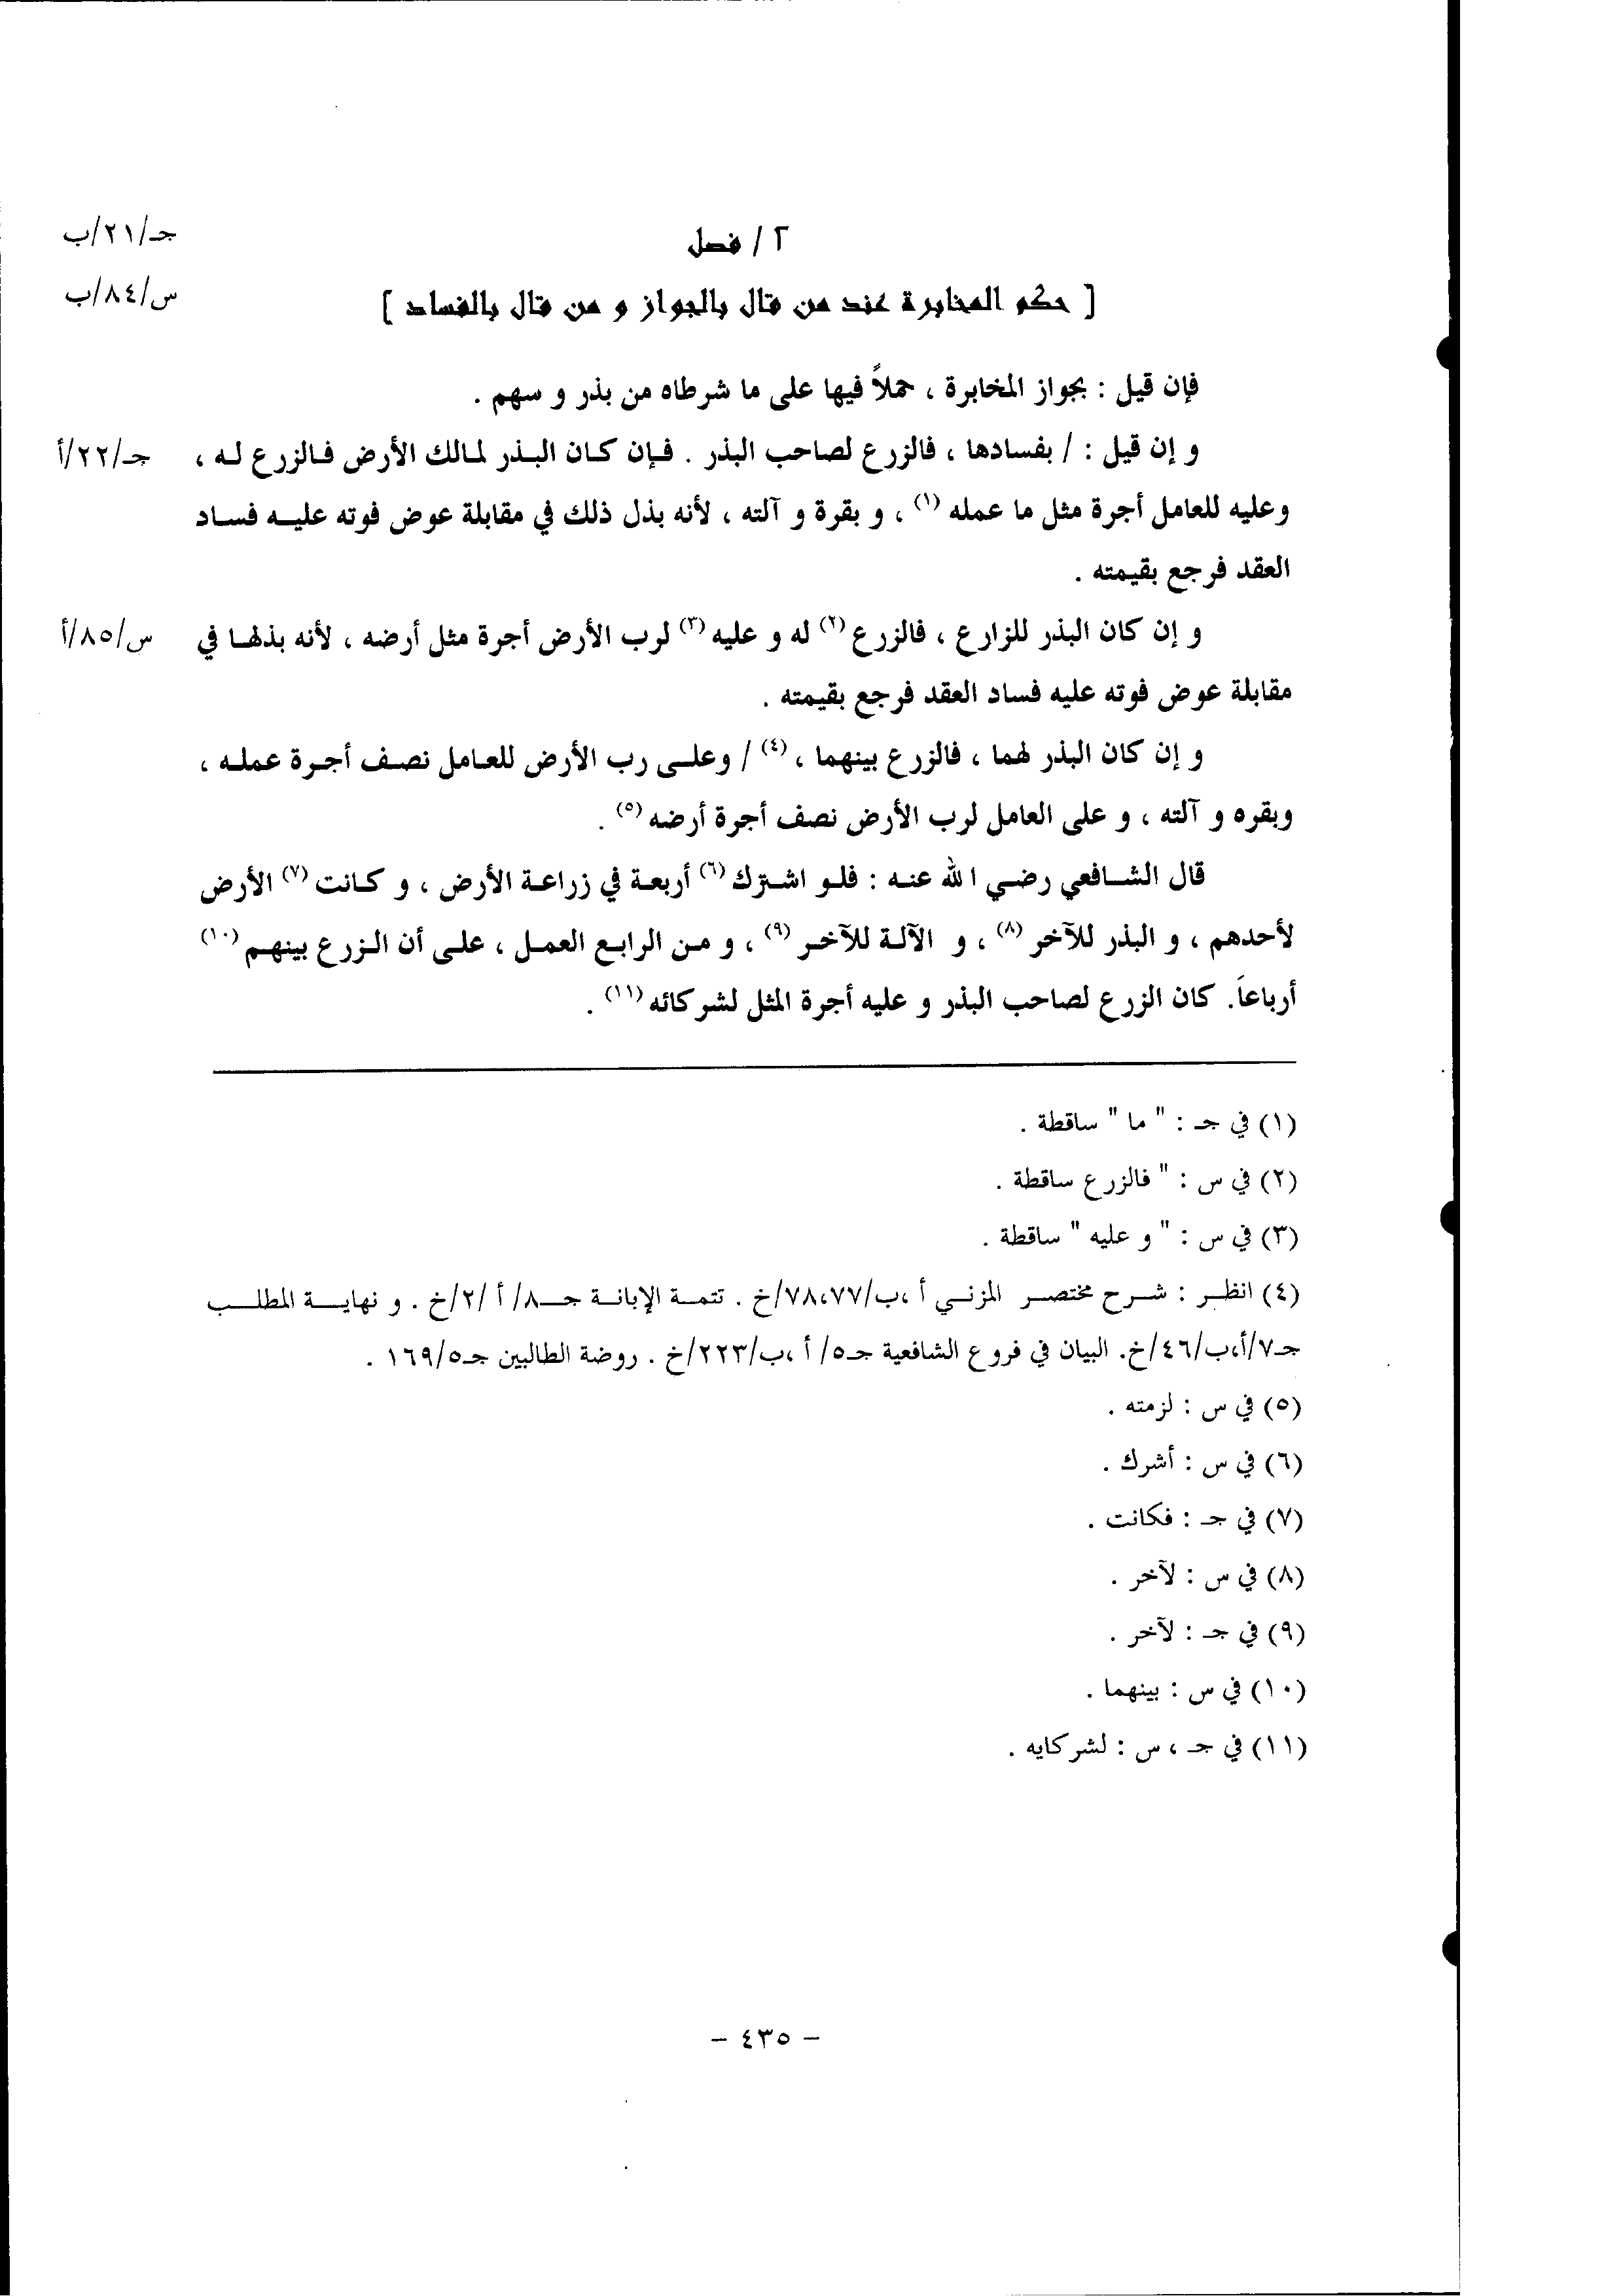 ٢ / فصل
جـ/٢١/ب
[ حكم المخابرة عند من قال بالجواز و من قال بالفساد ]
س/٨٤/ب
فإن قيل : بجواز المخابرة ، حملاً فيها على ما شرطاه من بذر و سهم .
و إن قيل : / بفسادها ، فالزرع لصاحب البذر . فـإن كـان البـذر لمالك الأرض فـالزرع لـه ، جـ/٢٢/أ
وعليه للعامل أجرة مثل ما عمله (١) ، و بقرة و آلته ، لأنه بذل ذلك في مقابلة عوض فوته عليـه فسـاد
العقد فرجع بقيمته .
و إن كان البذر للزارع ، فالزرع (٢) له و عليه (٣) لرب الأرض أجرة مثل أرضه ، لأنه بذلهـا في س/٨٥/أ
مقابلة عوض فوته عليه فساد العقد فرجع بقيمته .
و إن كان البذر لهما ، فالزرع بينهما ، (٤) / وعلـى رب الأرض للعـامل نصـف أجـرة عملـه ،
وبقره و آلته ، و على العامل لرب الأرض نصف أجرة أرضه (٥) .
قال الشـافعي رضـي الله عنـه : فلـو اشـترك (٦) أربعـة في زراعـة الأرض ، و كـانت (٧) الأرض
لأحدهم ، و البذر للآخر (٨) ، و الآلـة للآخـر (٩) ، و مـن الرابـع العمـل ، علـى أن الـزرع بينهـم (١٠)
أرباعاً. كان الزرع لصاحب البذر و عليه أجرة المثل لشركائه (١١) .
(١) في جـ : " ما " ساقطة .
(٢) في س : " فالزرع ساقطة .
(٣) في س : " و عليه " ساقطة .
(٤) انظـر : شـرح مختصـر المزنـي أ ،ب/٧٨،٧٧/خ . تتمـة الإبانـة جـ٨/ أ /٢/خ . و نهايـة المطلـب
جـ٧/أ،ب/٤٦/خ. البيان في فروع الشافعية جـ٥/ أ ،ب/٢٢٣/خ . روضة الطالبين جـ١٦٩/٥ .
(٥) في س : لزمته .
(٦) في س : أشرك .
(٧) في جـ : فكانت .
(٨) في س : لآخر .
(٩) في جـ : لآخر .
(١٠) في س : بينهما .
(١١) في جـ ، س : لشركايه .
– ٤٣٥ –